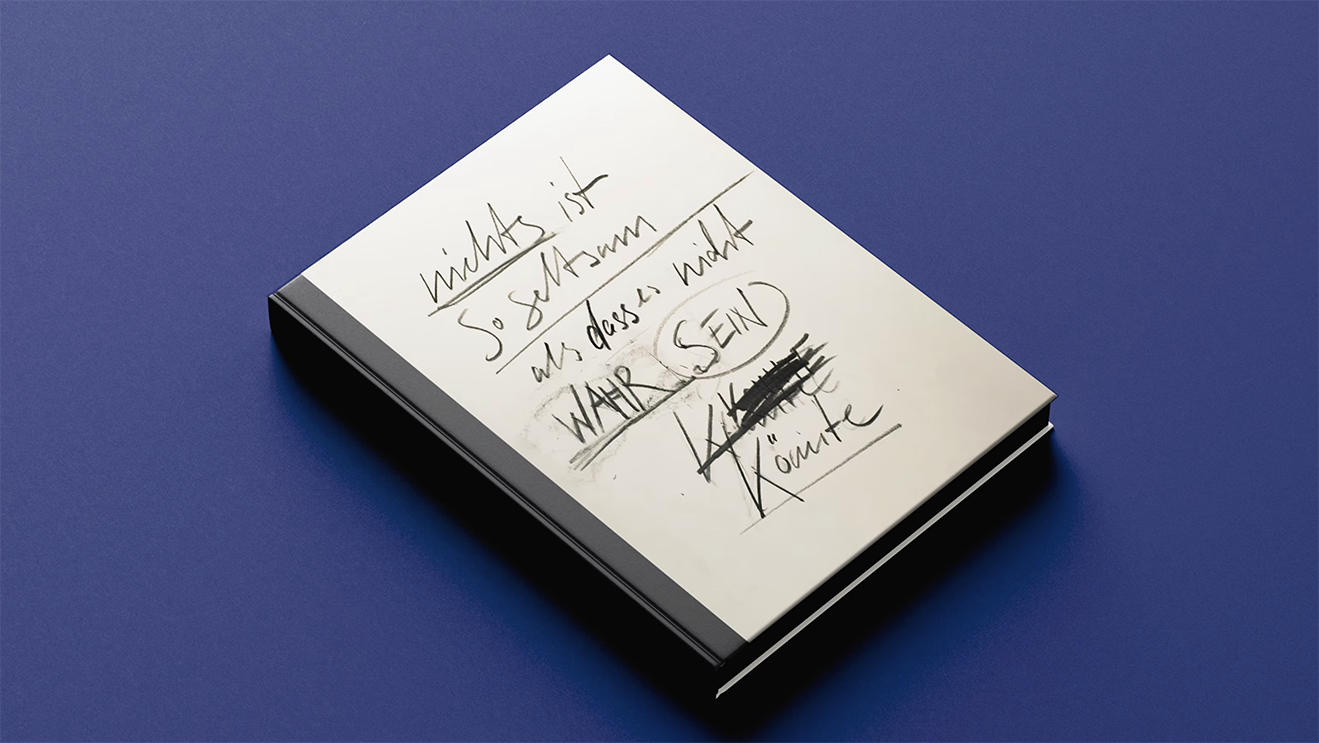 nichts ist
so seltsam
als dass es nicht
WAHR SEIN
könnte